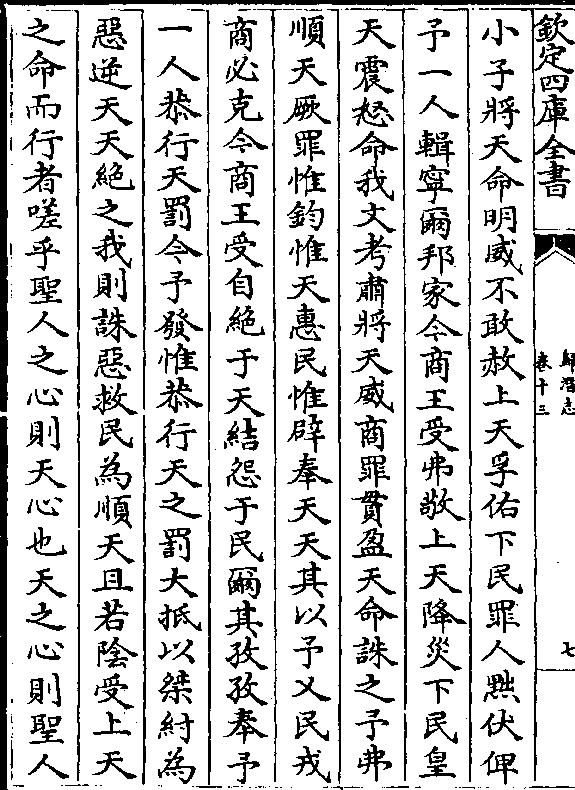 欽定四庫全書
歸潛志
卷十三
七
小子將天命明威不敢赦上天孚佑下民罪人黜伏俾
予一人輯寧爾邦家今商王受弗敬上天降災下民皇
天震怒命我文考肅將天威商罪貫盈天命誅之予弗
順天厥罪惟鈞惟天惠民惟辟奉天天其以予乂民戎
商必克今商王受自絕于天結怨于民爾其孜孜奉予
一人恭行天罰今予發惟恭行天之罰大抵以桀紂為
惡逆天天絕之我則誅惡救民為順天且若陰受上天
之命而行者嗟乎聖人之心則天心也天之心則聖人